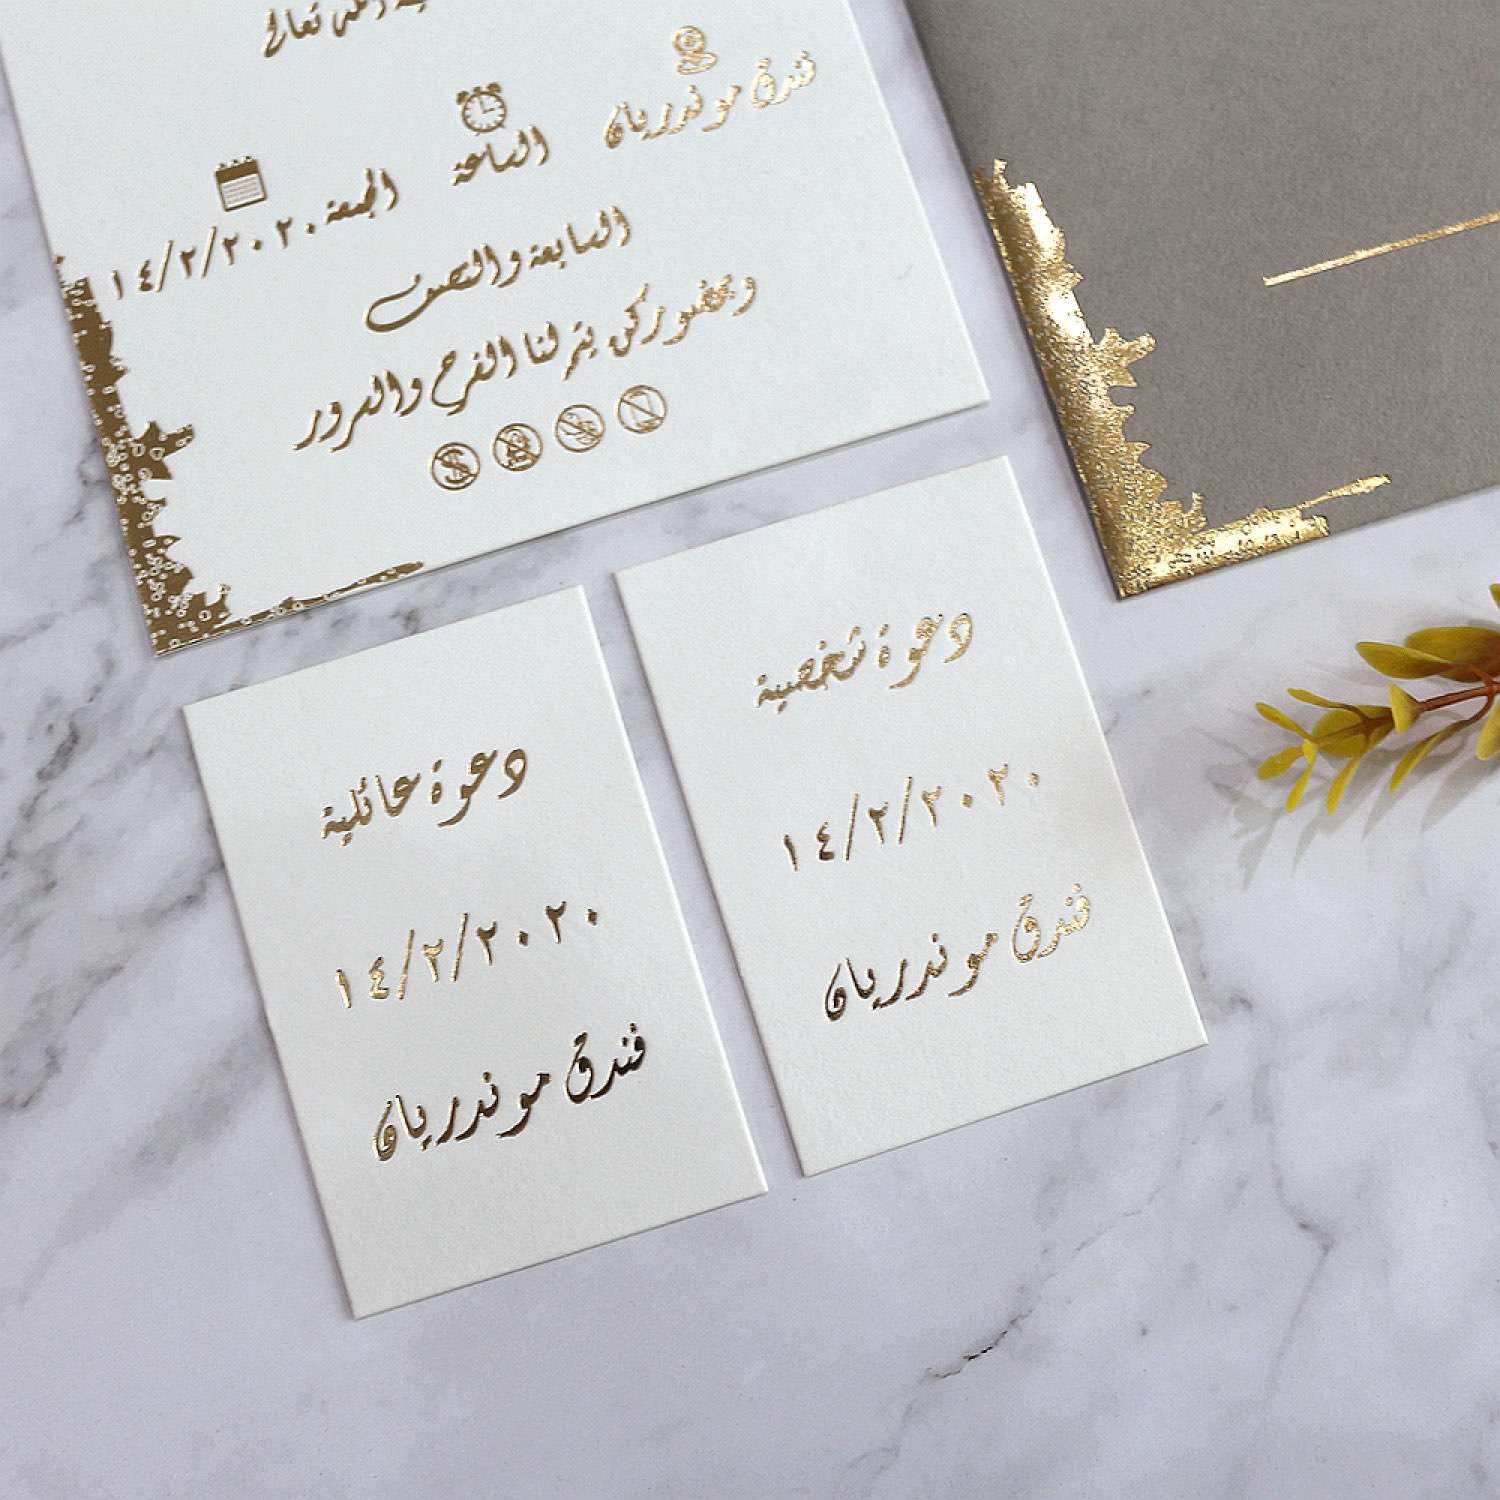 تعالى
فندق موندريان
الساعة
الجمعة ١٤/٢/٢٠٢٠
السابعة والنصف
وبحضوركن يتم لنا الفرح والسرور
دعوة عائلية
١٤/٢/٢٠٢٠
فندق موندريان
دعوة شخصية
١٤/٢/٢٠٢٠
فندق موندريان